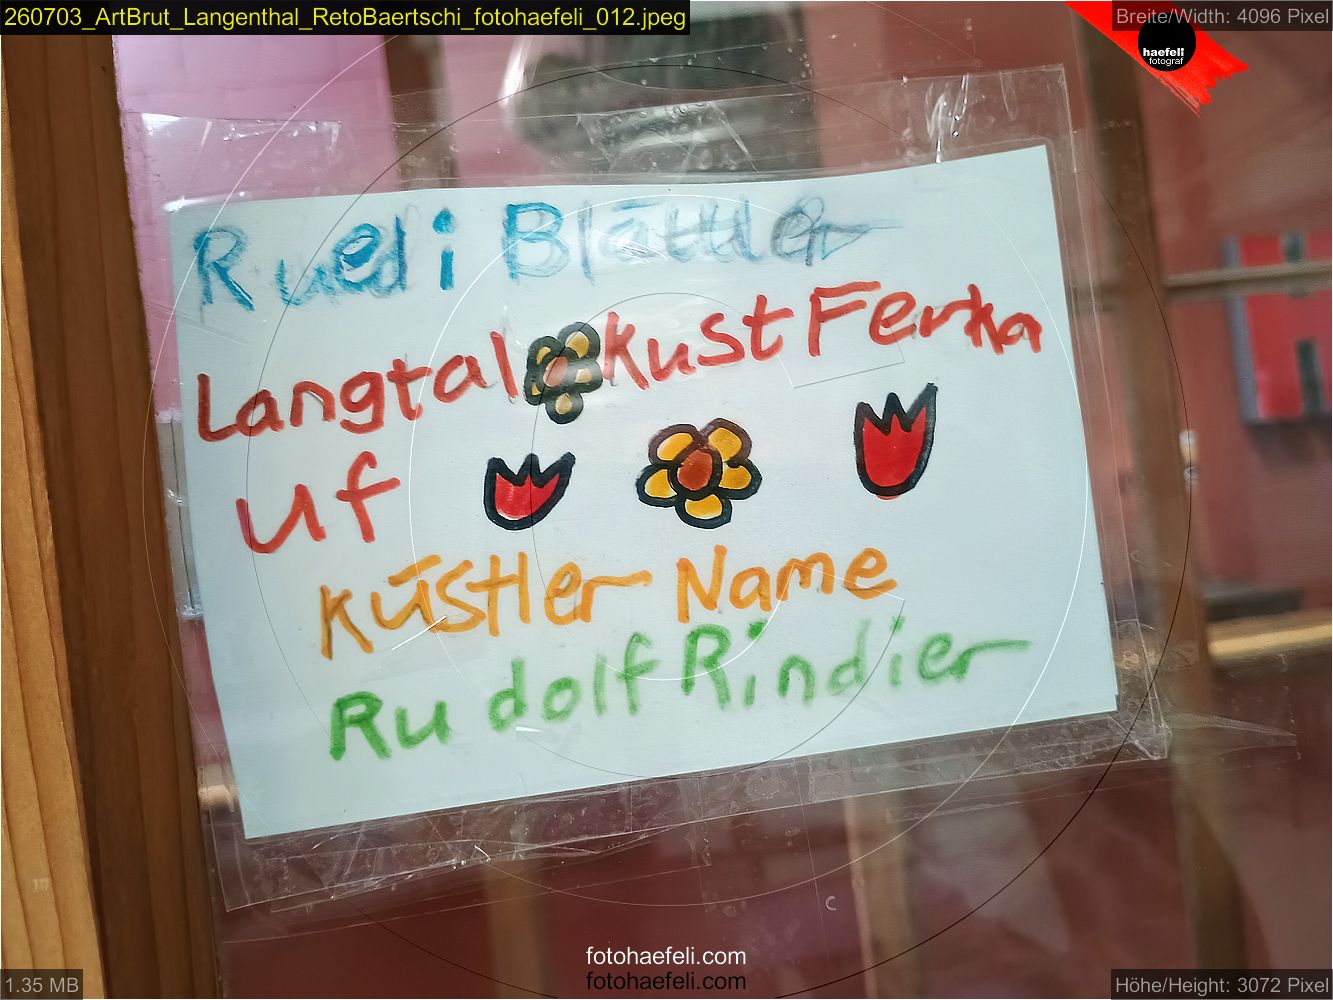 260703_ArtBrut_Langenthal_RetoBaertschi_fotohaefeli_012.jpeg
Breite/Width: 4096 Pixel
haefeli
fotograf
Ruedi Blättler
Langtal kust Ferka
Uf
Küstler Name
Rudolf Rindier
fotohaefeli.com
fotohaefeli.com
1.35 MB
Höhe/Height: 3072 Pixel